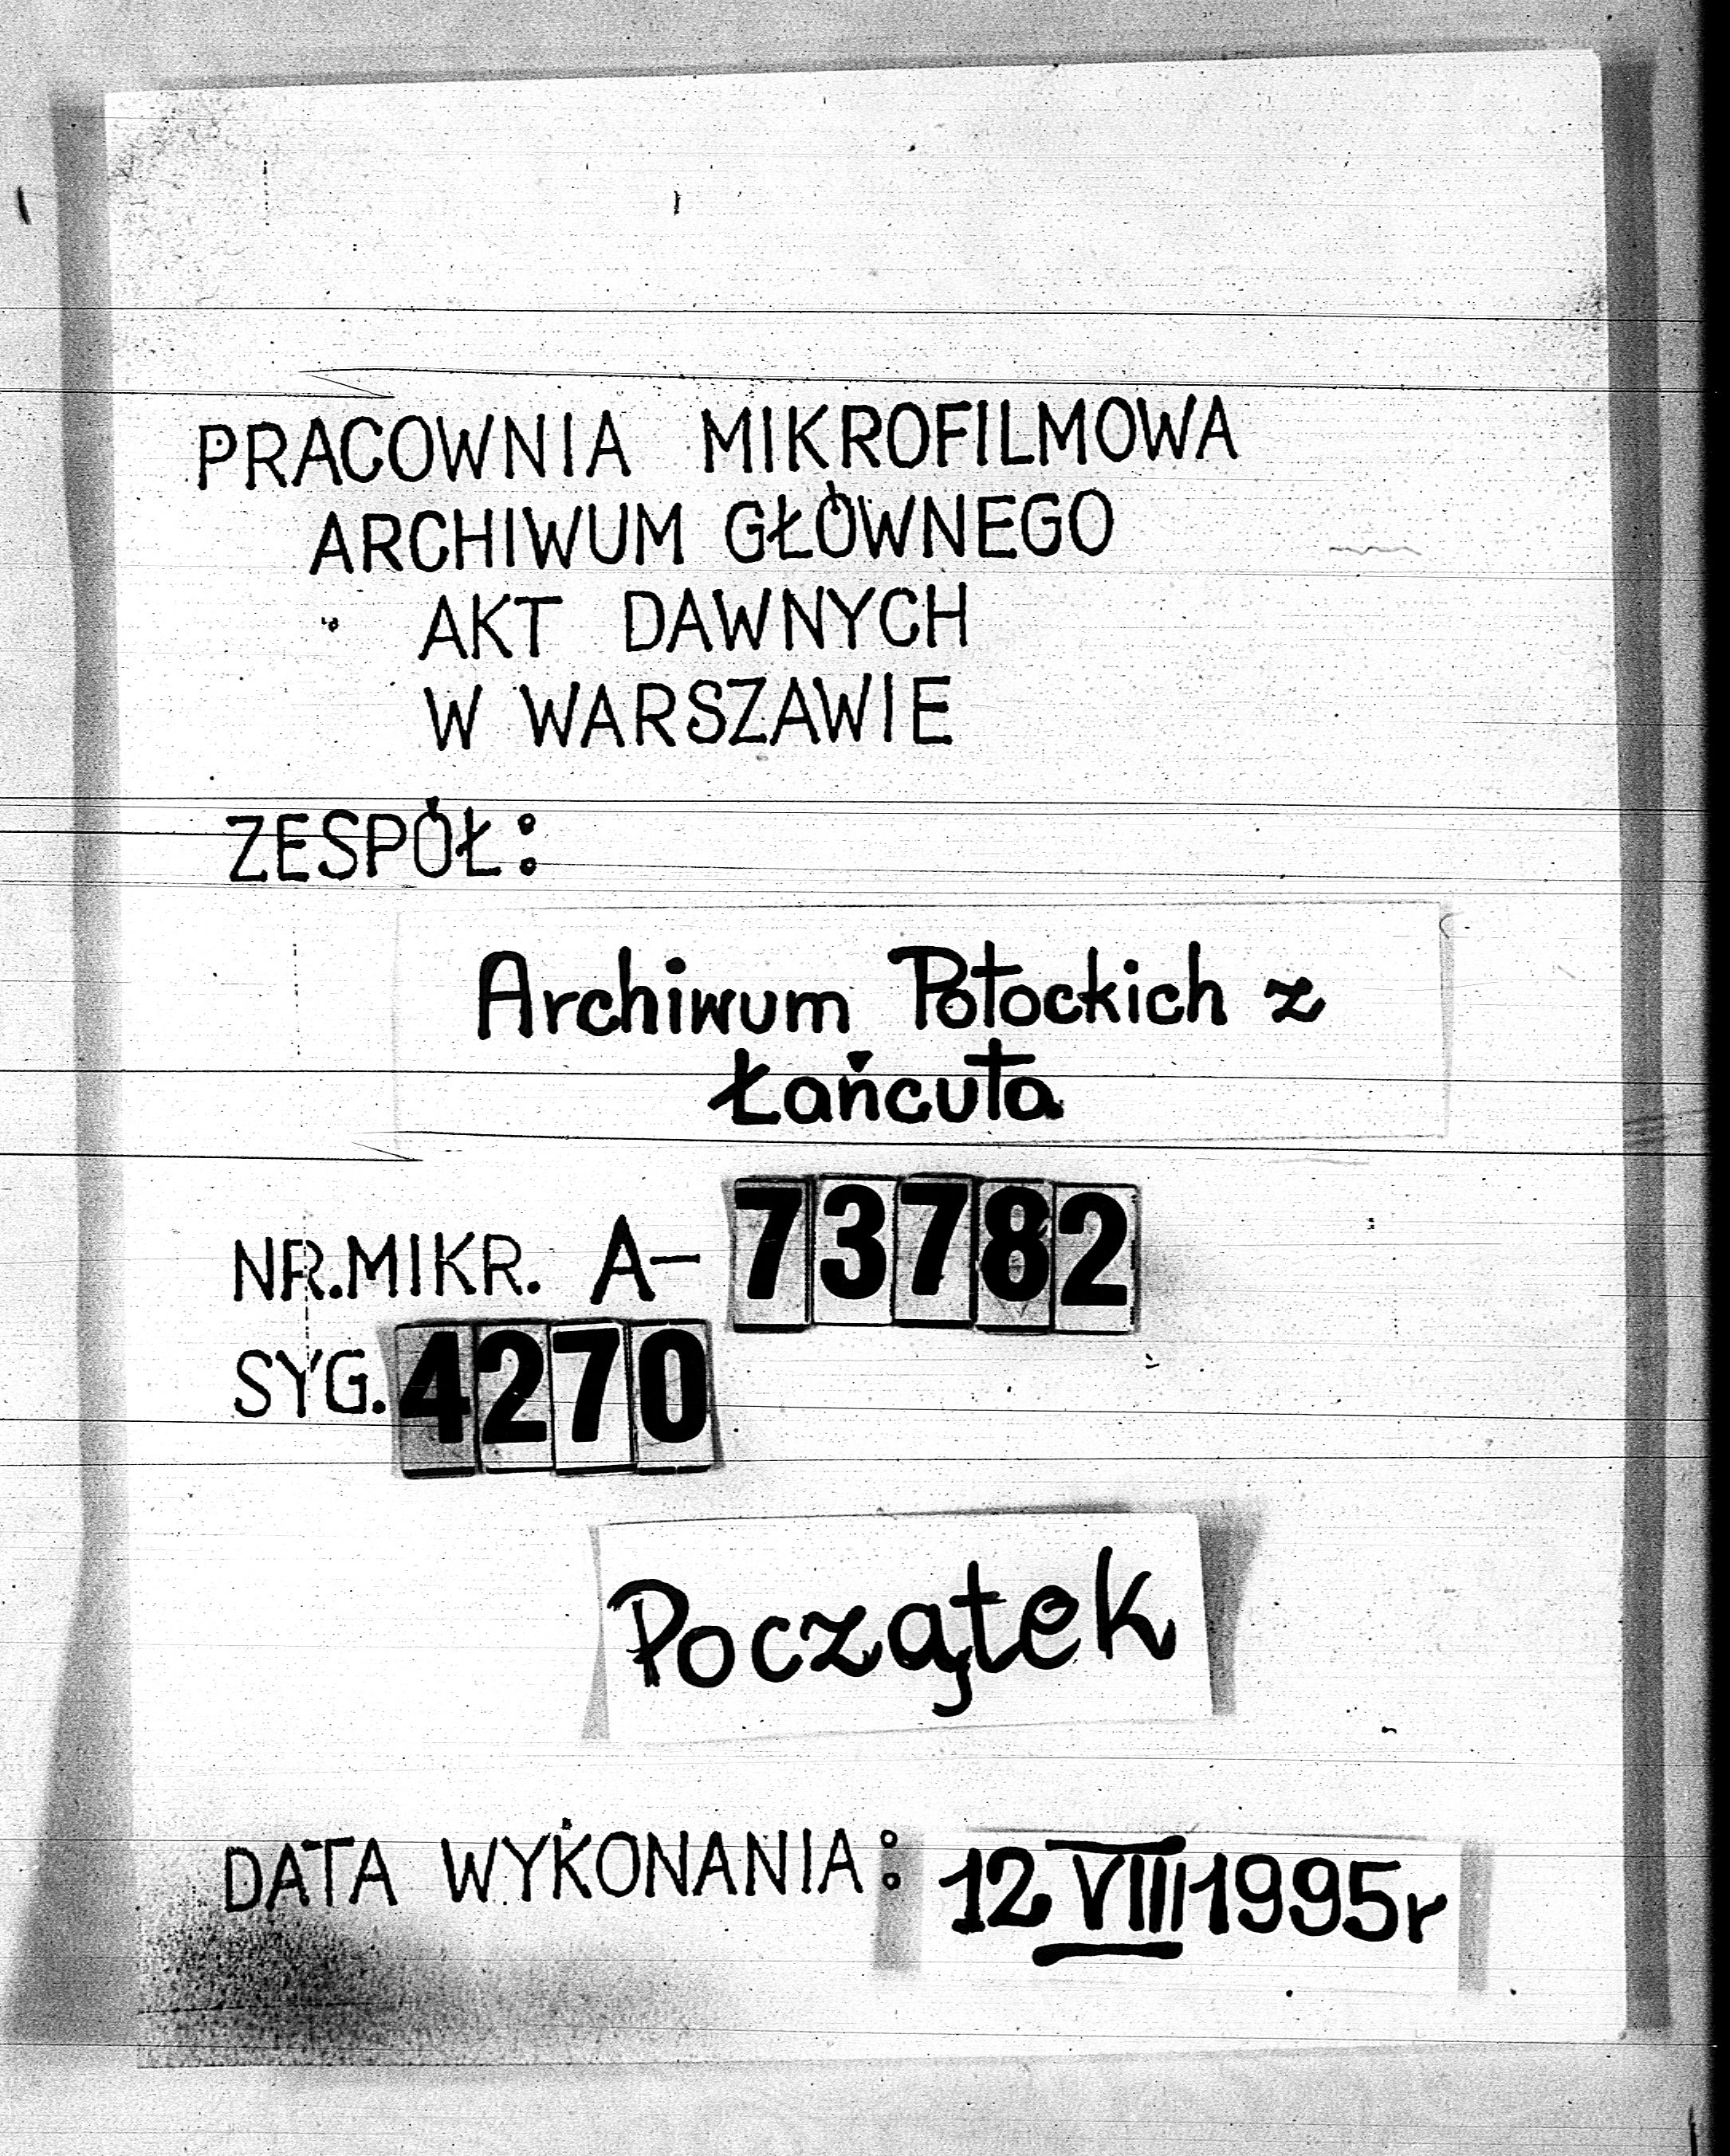 PRACOWNIA MIKROFILMOWA
ARCHIWUM GŁÓWNEGO
AKT DAWNYCH
W WARSZAWIE
ZESPÓŁ:
Archiwum Potockich z
Łańcuta
NR.MIKR. A- 73782
SYG. 4270
Początek
DATA WYKONANIA: 12 VIII 1995r